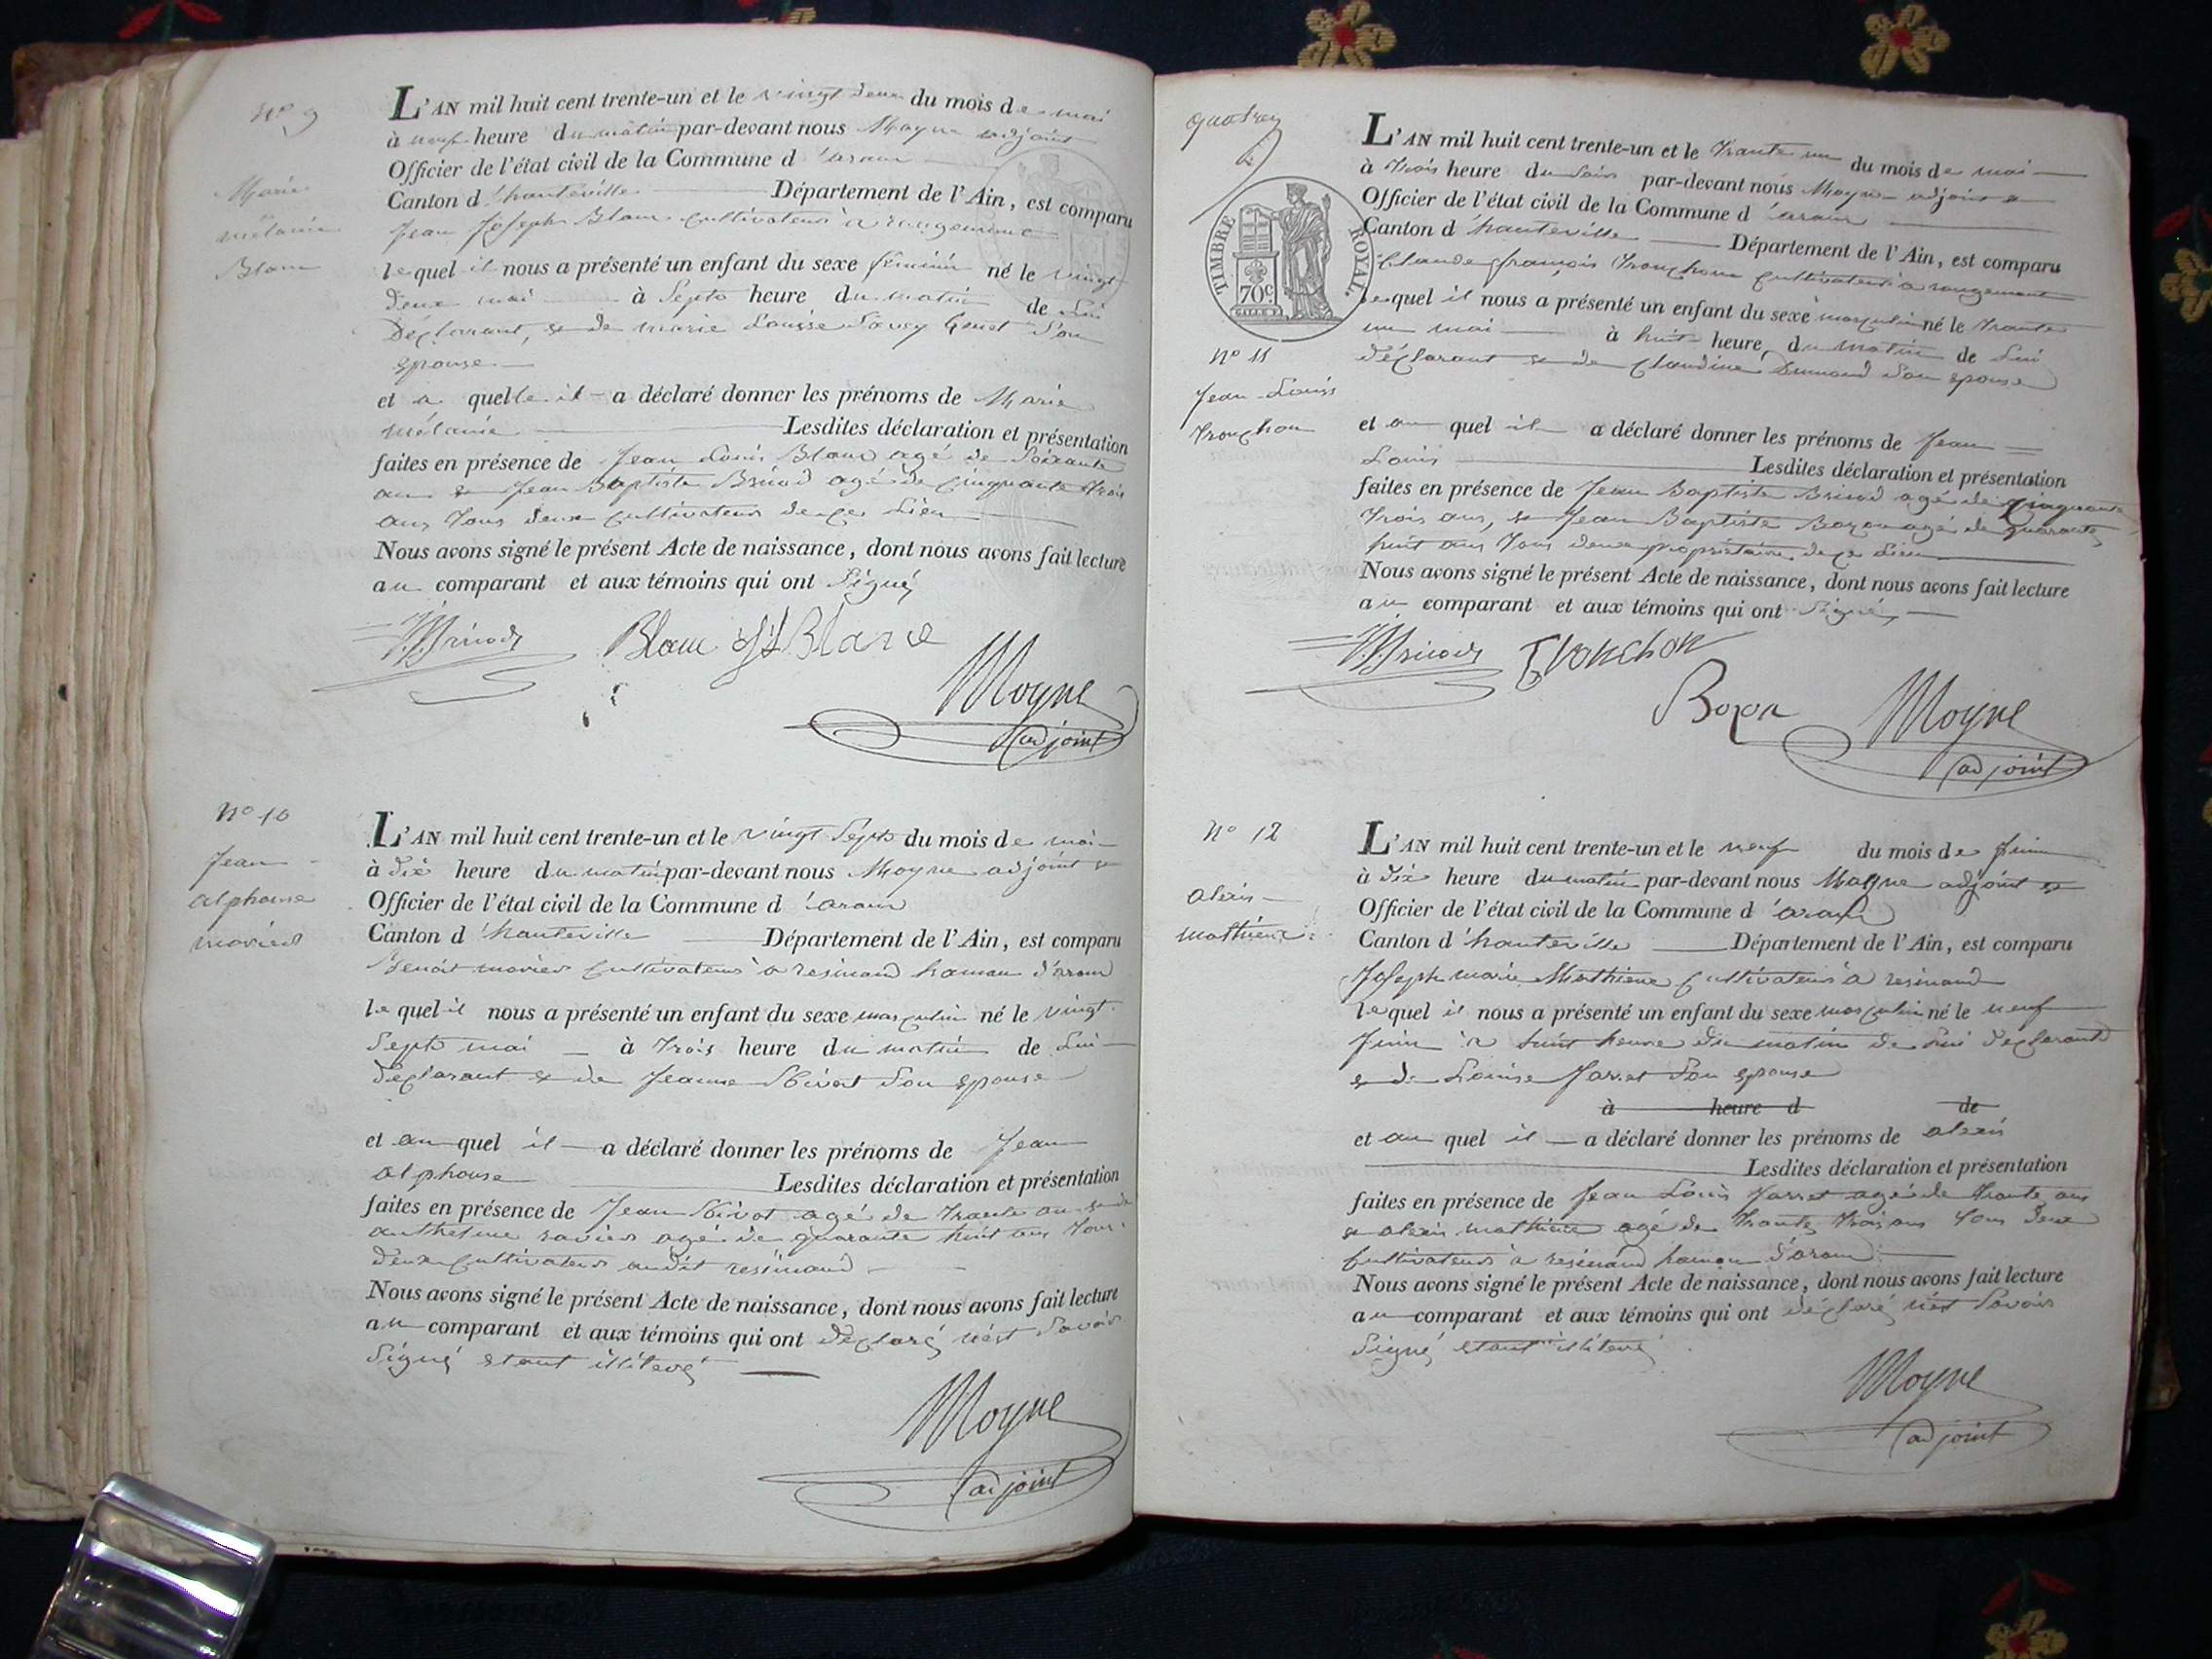 N° 9
Marie
mélanie
Blanc
L'AN mil huit cent trente-un et le vingt deux du mois de mai
à neuf heure du matin par-devant nous Moyne adjoint
Officier de l'état civil de la Commune d'aranc
Canton d'hauteville Département de l'Ain, est comparu
Jean Joseph Blanc cultivateur à rougemont
lequel il nous a présenté un enfant du sexe féminin né le vingt
deux mai à Septs heure du matin de Lui
Déclarant, et de marie Louise Savey Genet Son
epouse
et a quelle il a déclaré donner les prénoms de Marie
mélanie Lesdites déclaration et présentation
faites en présence de Jean Louis Blanc agé de Soixante
ans et Jean Baptiste Bricod agé de cinquante trois
ans Tous deux cultivateurs de ce Lieu
Nous avons signé le présent Acte de naissance, dont nous avons fait lecture
au comparant et aux témoins qui ont Signé
JBBricod Blanc JJ Blanc
Moyne
adjoint
N° 10
Jean
alphonse
L'AN mil huit cent trente-un et le vingt Septs du mois de mai
à dix heure du matin par-devant nous Moyne adjoint et
Officier de l'état civil de la Commune d'aranc
Canton d'hauteville Département de l'Ain, est comparu
Benoit cultivateur à resinand hamau d'aranc
lequel il nous a présenté un enfant du sexe masculin né le vingt
Septs mai à trois heure du matin de Lui
déclarant et de Jeanne Son epouse
et au quel il a déclaré donner les prénoms de Jean
alphonse Lesdites déclaration et présentation
faites en présence de Jean agé de trante ans et de
anthelme ravier agé de quarante huit ans tous
deux cultivateurs audit resinand
Nous avons signé le présent Acte de naissance, dont nous avons fait lecture
au comparant et aux témoins qui ont déclaré n'est Savoir
Signé etant illiteré
Moyne
adjoint
quatrey
TIMBRE ROYAL.
70c.
N° 11
Jean Louis
tronchon
L'AN mil huit cent trente-un et le trante un du mois de mai
à trois heure du Soir par-devant nous Moyne adjoint et
Officier de l'état civil de la Commune d'aranc
Canton d'hauteville Département de l'Ain, est comparu
Claude françois tronchon cultivateur à rougemont
lequel il nous a présenté un enfant du sexe masculin né le trante
un mai à huit heure du matin de Lui
déclarant et de Claudine Son epouse
et au quel il a déclaré donner les prénoms de Jean
Louis Lesdites déclaration et présentation
faites en présence de Jean Baptiste Bricod agé de cinquante
trois ans, et Jean Baptiste Bozon agé de quarante
huit ans Tous deux propriétaire de ce Lieu
Nous avons signé le présent Acte de naissance, dont nous avons fait lecture
au comparant et aux témoins qui ont Signé
JBBricod Tronchon
Bozon Moyne
adjoint
N° 12
alexis
mathieux
L'AN mil huit cent trente-un et le neuf du mois de Juin
à dix heure du matin par-devant nous Moyne adjoint et
Officier de l'état civil de la Commune d'aranc
Canton d'hauteville Département de l'Ain, est comparu
Joseph marie Mathieux cultivateur à resinand
lequel il nous a présenté un enfant du sexe masculin né le neuf
Juin à huit heure du matin de Lui déclarant
et de Louise Jarret Son epouse
à heure d de
et au quel il a déclaré donner les prénoms de alexis
Lesdites déclaration et présentation
faites en présence de Jean Louis Jarret agé de trante ans
et alexis mathieux agé de trante trois ans Tous deux
cultivateurs à resinand hamau d'aranc
Nous avons signé le présent Acte de naissance, dont nous avons fait lecture
au comparant et aux témoins qui ont déclaré n'est Savoir
Signé etant illiteré
Moyne
adjoint